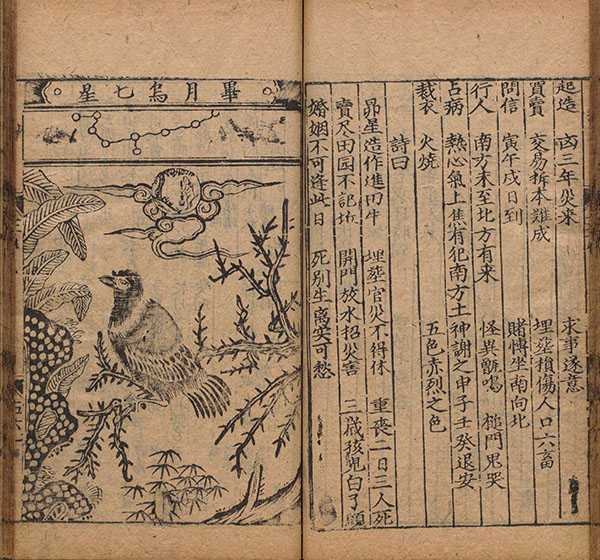 起造　凶三年災來　求事遂意
買賣　交易折本難成　埋塟損傷人口六畜
問信　寅午戌日到　賭愽坐南向北
行人　南方未至北方有來　怪異　鳴　槌門鬼哭
占病　熱心氣上焦有犯南方土　神謝之申子壬癸退安
裁衣　火燒　五色赤烈之色
詩曰
昴星造作進田牛　埋塟官災不得休　重喪二日三人死
賣尽田园不記坵　開門放水招災害　三歲孩兒白了頭
婚姻不可逢此日　死别生离实可愁
畢月烏七星